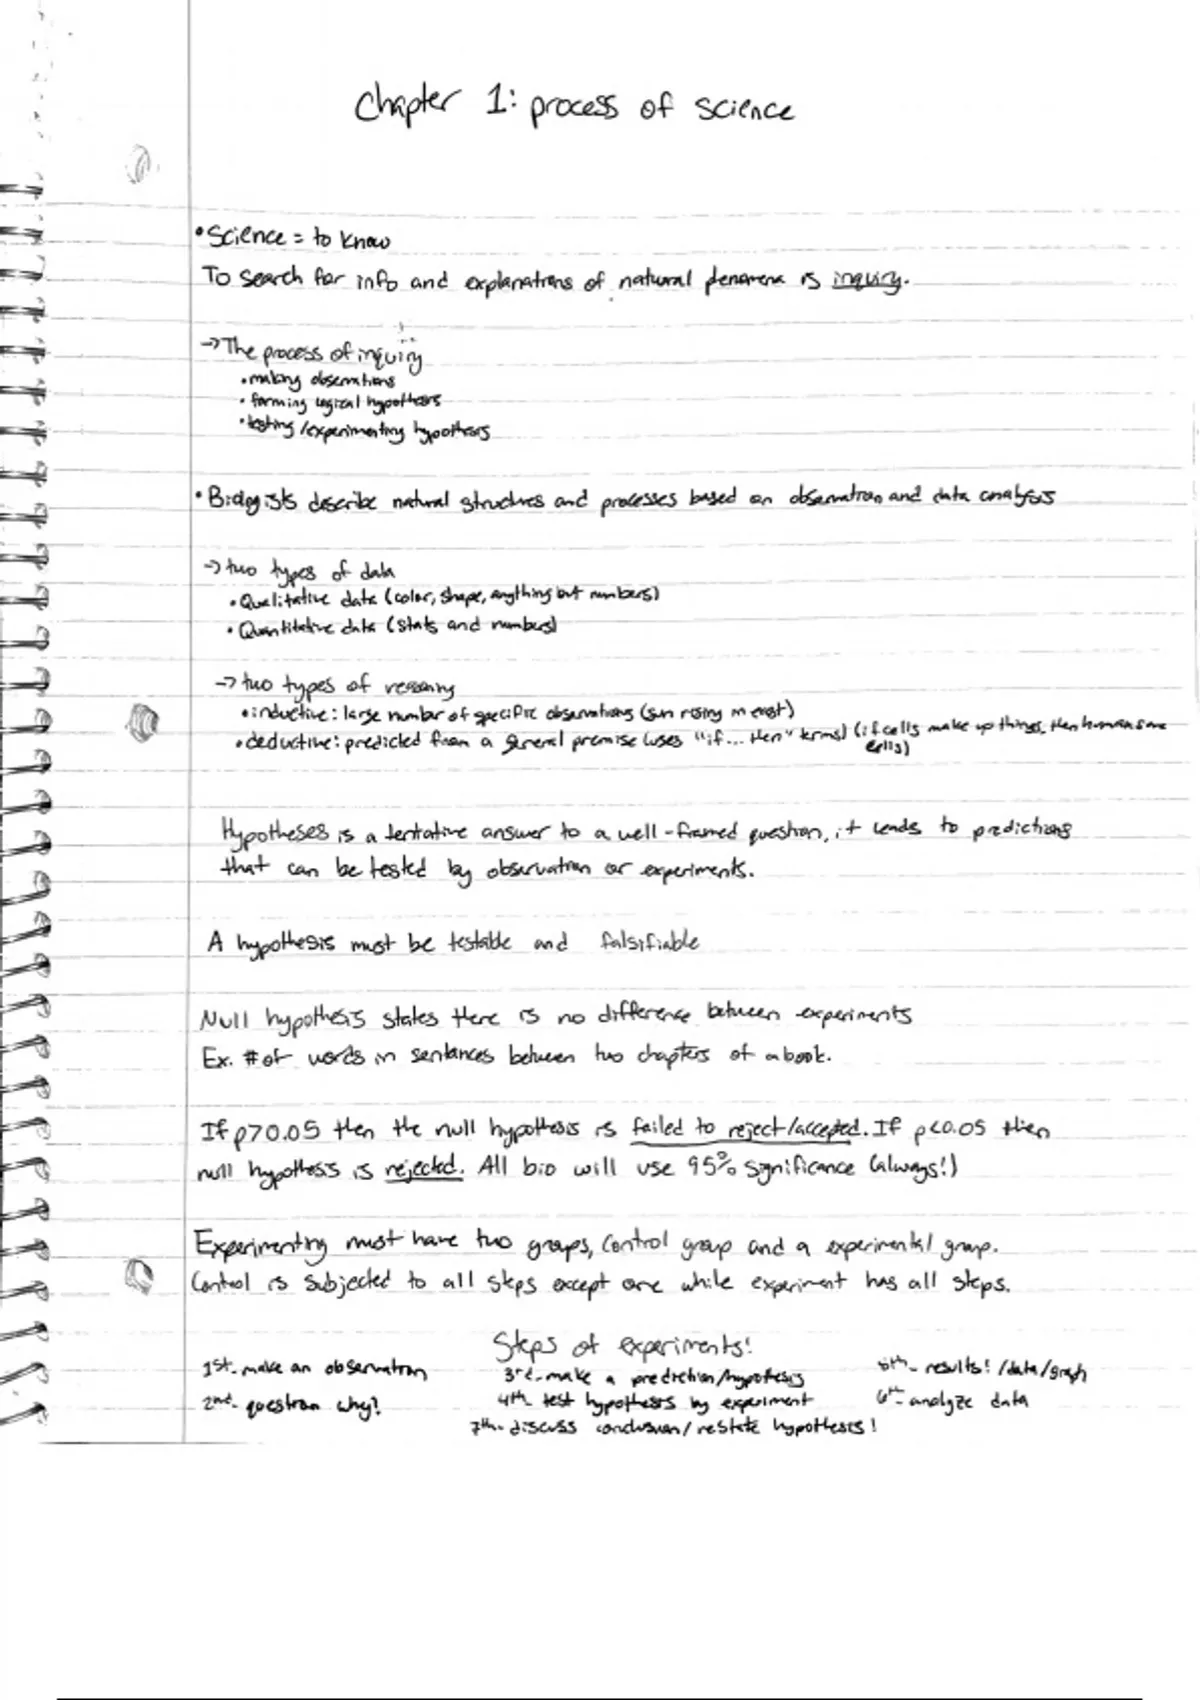 Chapter 1: process of science
• Science = to know
To search for info and explanations of natural phenomena is inquiry.
→ The process of inquiry
• making observations
• forming logical hypothesis
• testing/experimenting hypothesis
• Biologists describe natural structures and processes based on observation and data analysis
→ two types of data
• Qualitative data (color, shape, anything but numbers)
• Quantitative data (stats and numbers)
→ two types of reasoning
• inductive: large number of specific observations (sun rising in east)
• deductive: predicted from a general premise (uses "if... then" terms) (if cells make up things, then humans are
cells)
Hypotheses is a tentative answer to a well-framed question, it leads to predictions
that can be tested by observation or experiments.
A hypothesis must be testable and falsifiable
Null hypothesis states there is no difference between experiments
Ex. # of words in sentences between two chapters of a book.
If p>0.05 then the null hypothesis is failed to reject/accepted. If p<0.05 then
null hypothesis is rejected. All bio will use 95% significance (always!)
Experimenting must have two groups, control group and a experimental group.
Control is subjected to all steps except one while experiment has all steps.
Steps of experiments!
1st- make an observation 3rd- make a prediction/hypothesis - results! /data/graph
2nd- question why? 4th- test hypothesis by experiment 6th- analyze data
7th- discuss conclusion/restate hypothesis!